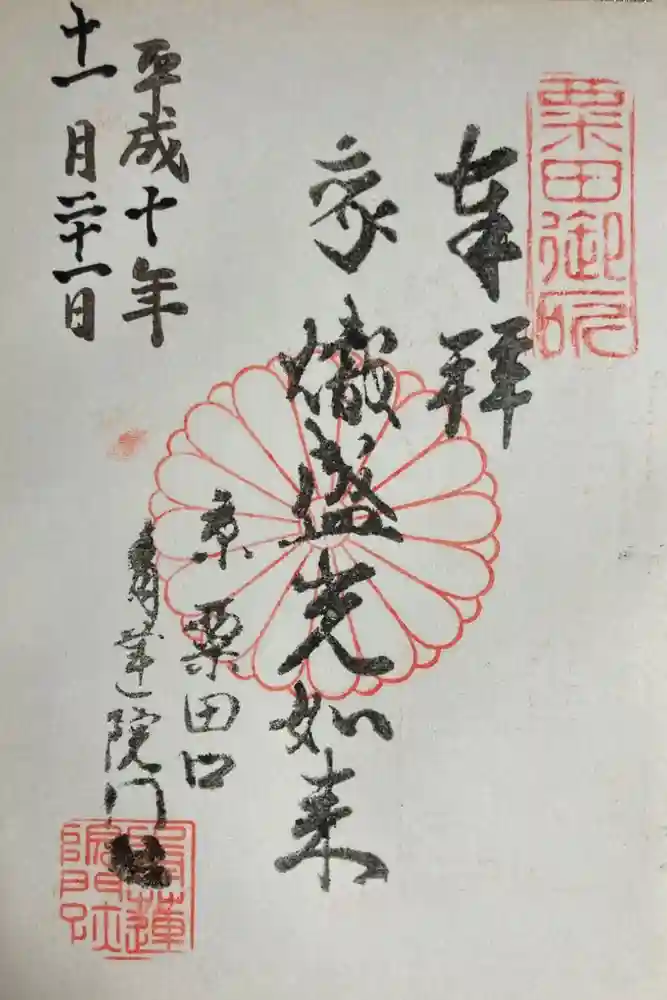 粟田御所
奉拝
熾盛光如来
京 粟田口
青蓮院門跡
平成十年
十一月二十一日
青蓮院門跡